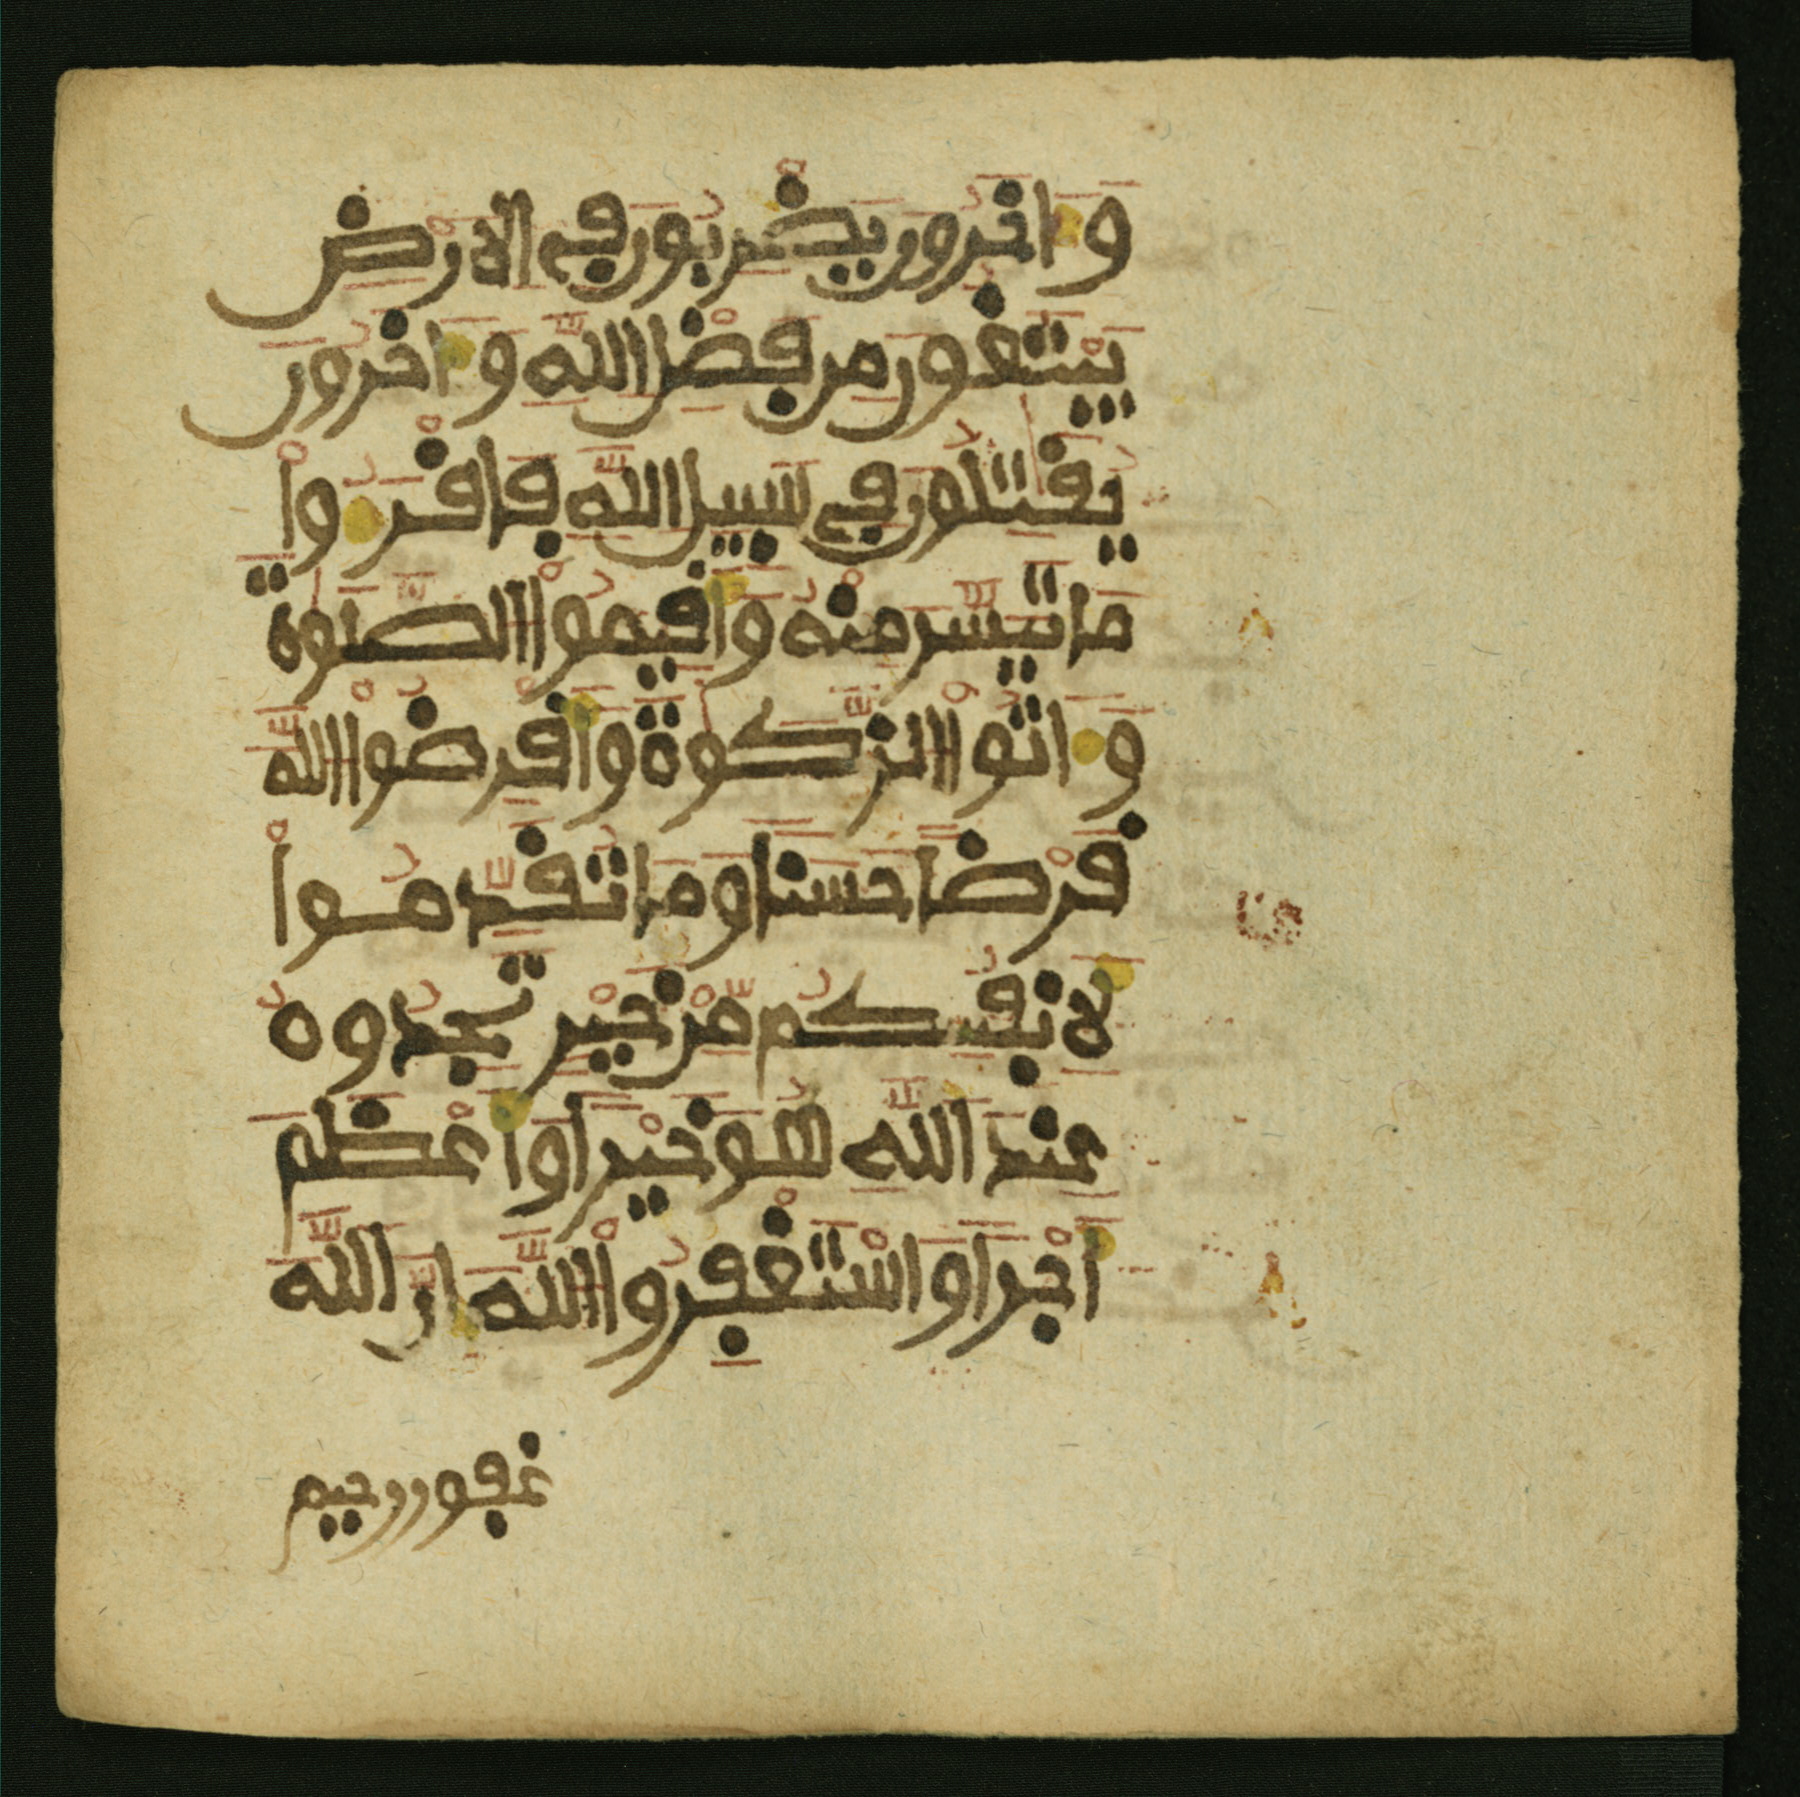 وَءَاخَرُونَ يَضْرِبُونَ فِے اِلَارْضِ
يَبْتَغُونَ مِن فَضْلِ اِللَّهِ وَءَاخَرُونَ
يُقَٰتِلُونَ فِے سَبِيلِ اِللَّهِ فَاقْرَءُواْ
مَا تَيَسَّرَ مِنْهُ وَأَقِيمُواْ اُلصَّلَوٰةَ
وَءَاتُواْ اُلزَّكَوٰةَ وَأَقْرِضُواْ اُللَّهَ
قَرْضاً حَسَناً وَمَا تُقَدِّمُواْ
لِأَنفُسِكُم مِّنْ خَيْرٍ تَجِدُوهُ
عِندَ اَللَّهِ هُوَ خَيْراً وَأَعْظَمَ
أَجْراً وَاسْتَغْفِرُواْ اُللَّهَ إِنَّ اَللَّهَ
غفور رحيم